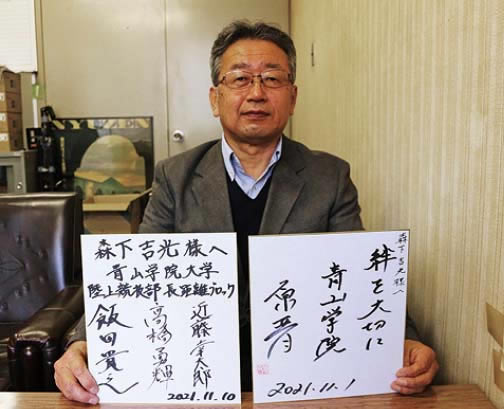 森下吉光様へ
青山学院大学
陸上競技部長距離ブロック
近藤幸太郎
高橋勇輝
飯田貴之
2021.11.10
森下吉光様へ
絆を大切に
青山学院
原晋
2021.11.1